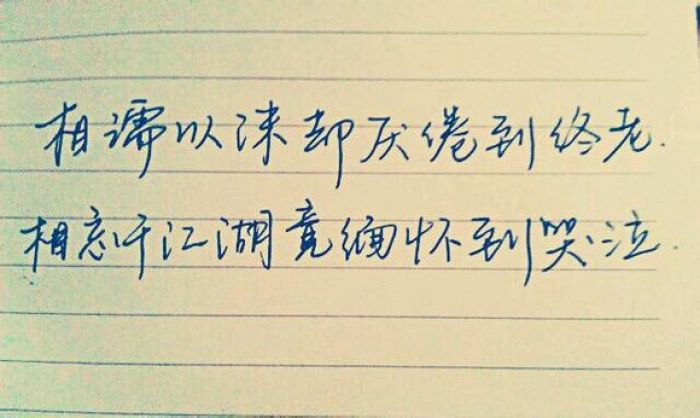 相濡以沫却厌倦到终老.
相忘于江湖竟缅怀到哭泣.